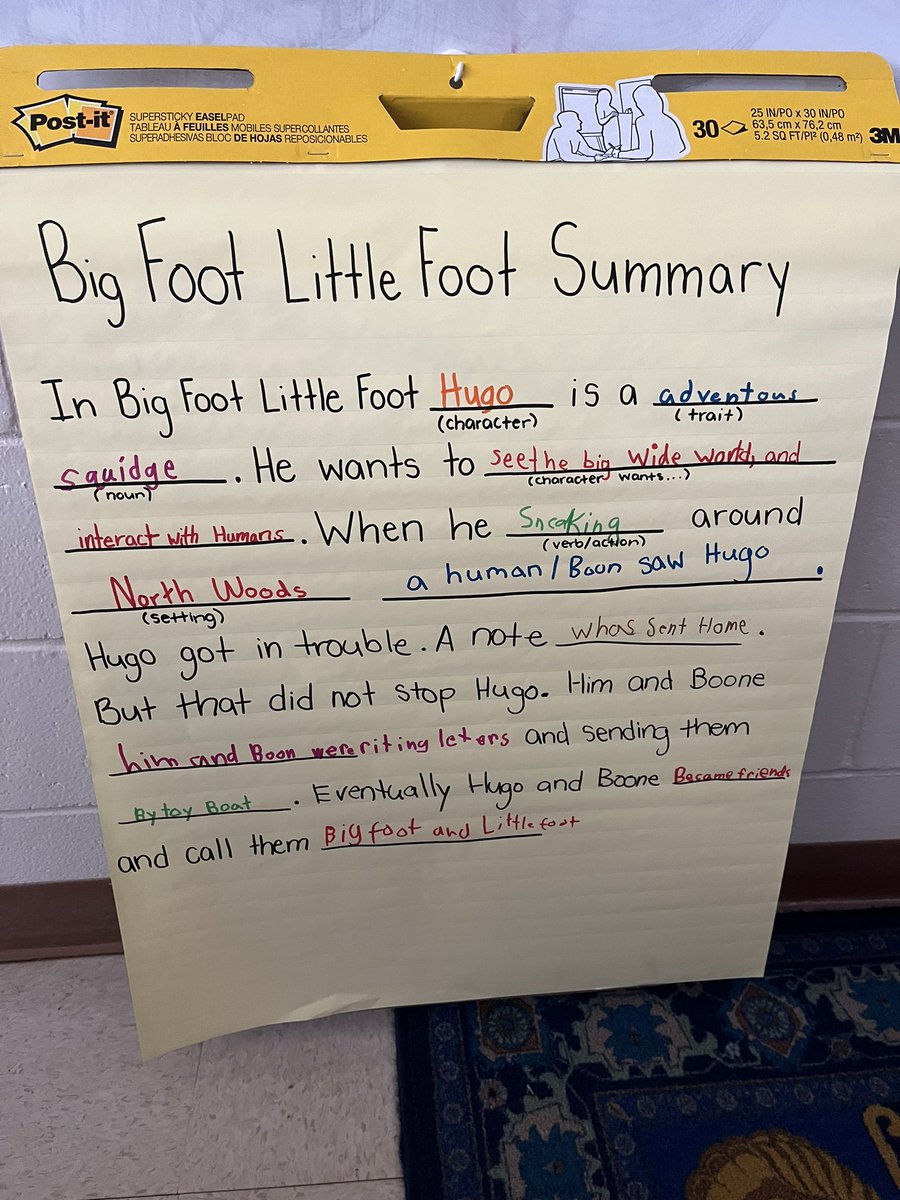 Post-it
SUPERSTICKY EASELPAD
TABLEAU À FEUILLES MOBILES SUPERCOLLANTES
SUPERADHESIVAS BLOC DE HOJAS REPOSICIONABLES
30
25 IN/PO x 30 IN/PO
63,5 cm x 76,2 cm
5.2 SQ FT/PI² (0,48 m²)
3M
Big Foot Little Foot Summary
In Big Foot Little Foot Hugo is a adventous
(character) (trait)
squidge. He wants to see the big wide world, and
(noun) (character wants...)
interact with Humans. When he Sneaking around
(verb/action)
North Woods a human/Boon saw Hugo.
(setting)
Hugo got in trouble. A note whas sent Home.
But that did not stop Hugo. Him and Boone
him and Boon were riting leters and sending them
By toy Boat. Eventually Hugo and Boone Became friends
and call them Bigfoot and Littlefoot